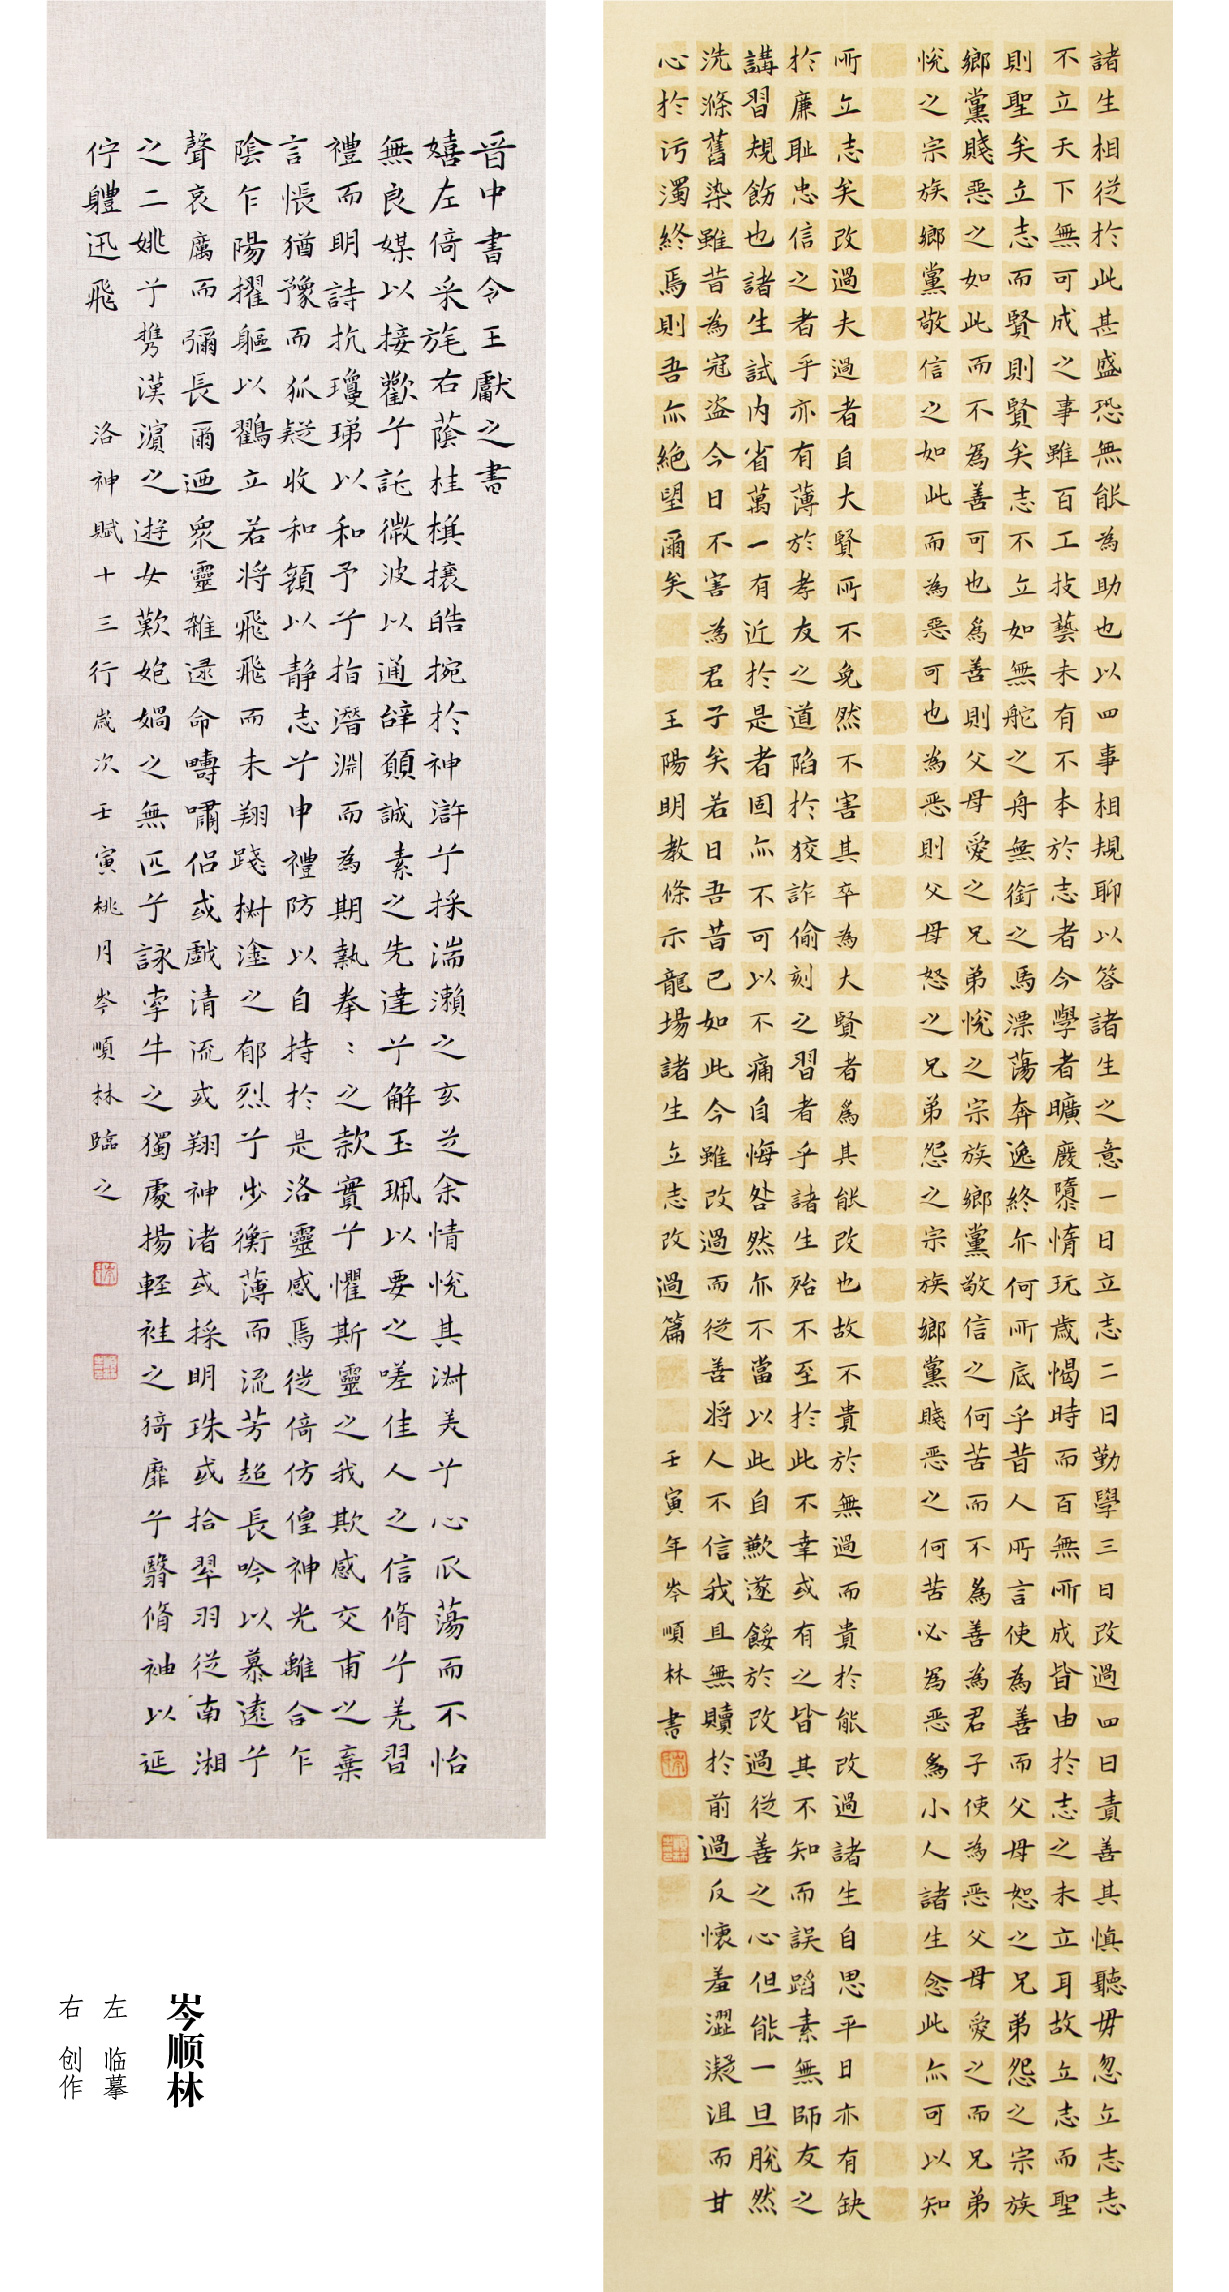 諸生相從於此甚盛恐無能為助也以四事相規聊以答諸生之意一曰立志二曰勤學三曰改過四曰責善其慎聽毋忽立志志
不立天下無可成之事雖百工技藝未有不本於志者今學者曠廢隳惰玩歲愒時而百無所成皆由於志之未立耳故立志而聖
則聖矣立志而賢則賢矣志不立如無舵之舟無銜之馬漂蕩奔逸終亦何所底乎昔人所言使為善而父母怒之兄弟怨之宗族
鄉黨賤惡之如此而不為善可也為善則父母愛之兄弟悅之宗族鄉黨敬信之何苦而不為善為君子使為惡父母愛之而兄弟
悅之宗族鄉黨敬信之如此而為惡可也為惡則父母怒之兄弟怨之宗族鄉黨賤惡之何苦必為惡為小人諸生念此亦可以知
所立志矣改過夫過者自大賢所不免然不害其卒為大賢者為其能改也故不貴於無過而貴於能改過諸生自思平日亦有缺
於廉恥忠信之者乎亦有薄於孝友之道陷於狡詐偷刻之習者乎諸生殆不至於此不幸或有之皆其不知而誤蹈素無師友之
講習規飭也諸生試內省萬一有近於是者固亦不可以不痛自悔咎然亦不當以此自歉遂餒於改過從善之心但能一旦脫然
洗滌舊染雖昔為寇盜今日不害為君子矣若曰吾昔已如此今雖改過而從善將人不信我且無贖於前過反懷羞澀凝沮而甘
心於污濁終焉則吾亦絕望爾矣 王陽明教條示龍場諸生立志改過篇 壬寅年岑順林書
晉中書令王獻之書
嬉左倚采旄右蔭桂旗攘皓捥於神滸兮採湍瀨之玄芝余情悅其淑美兮心振蕩而不怡
無良媒以接歡兮託微波以通辭願誠素之先達兮解玉珮以要之嗟佳人之信脩兮羌習
禮而明詩抗瓊珶以和予兮指潛淵而為期執拳〻之款實兮懼斯靈之我欺感交甫之棄
言悵猶豫而狐疑收和顏以靜志兮申禮防以自持於是洛靈感焉徙倚仿偟神光離合乍
陰乍陽擢軀以鶴立若將飛飛而未翔踐椒塗之郁烈兮步衡薄而流芳超長吟以慕遠兮
聲哀厲而彌長爾迺眾靈雜遝命疇嘯侶或戲清流或翔神渚或採明珠或拾翠羽從南湘
之二姚兮攜漢濱之遊女歎匏媧之無匹兮詠牽牛之獨處揚輕袿之猗靡兮翳脩袖以延
佇軆迅飛 洛神賦十三行歲次壬寅桃月岑順林臨之
岑顺林
左 临摹
右 创作